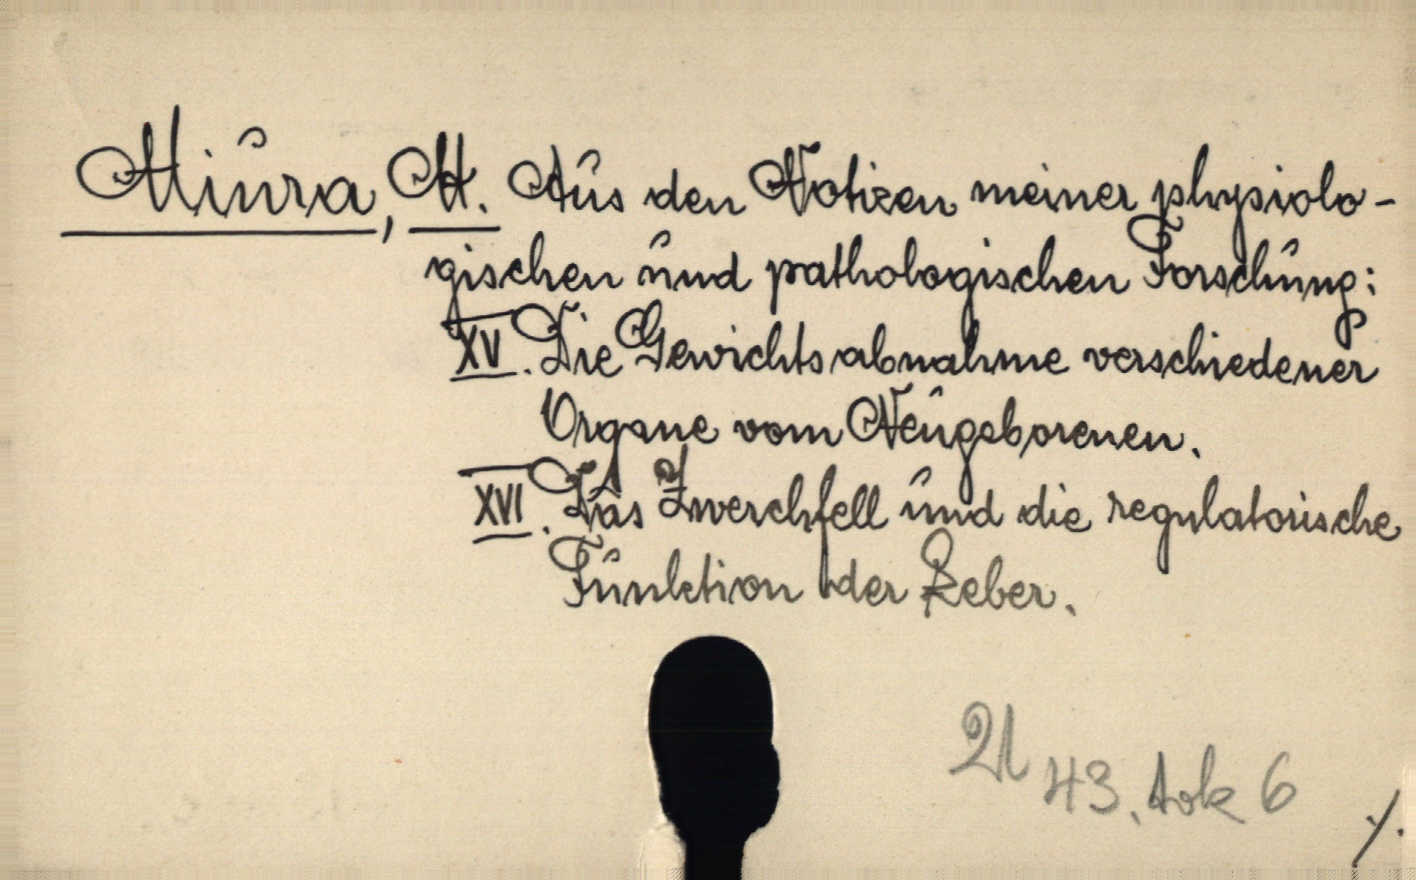 Miura, M. Aus den Notizen meiner physiolo-
gischen und pathologischen Forschung:
XV. Die Gewichtsabnahme verschiedener
Organe vom Neugeborenen.
XVI. Das Zwerchfell und die regulatorische
Funktion der Leber.
U 43, tok 6
./.